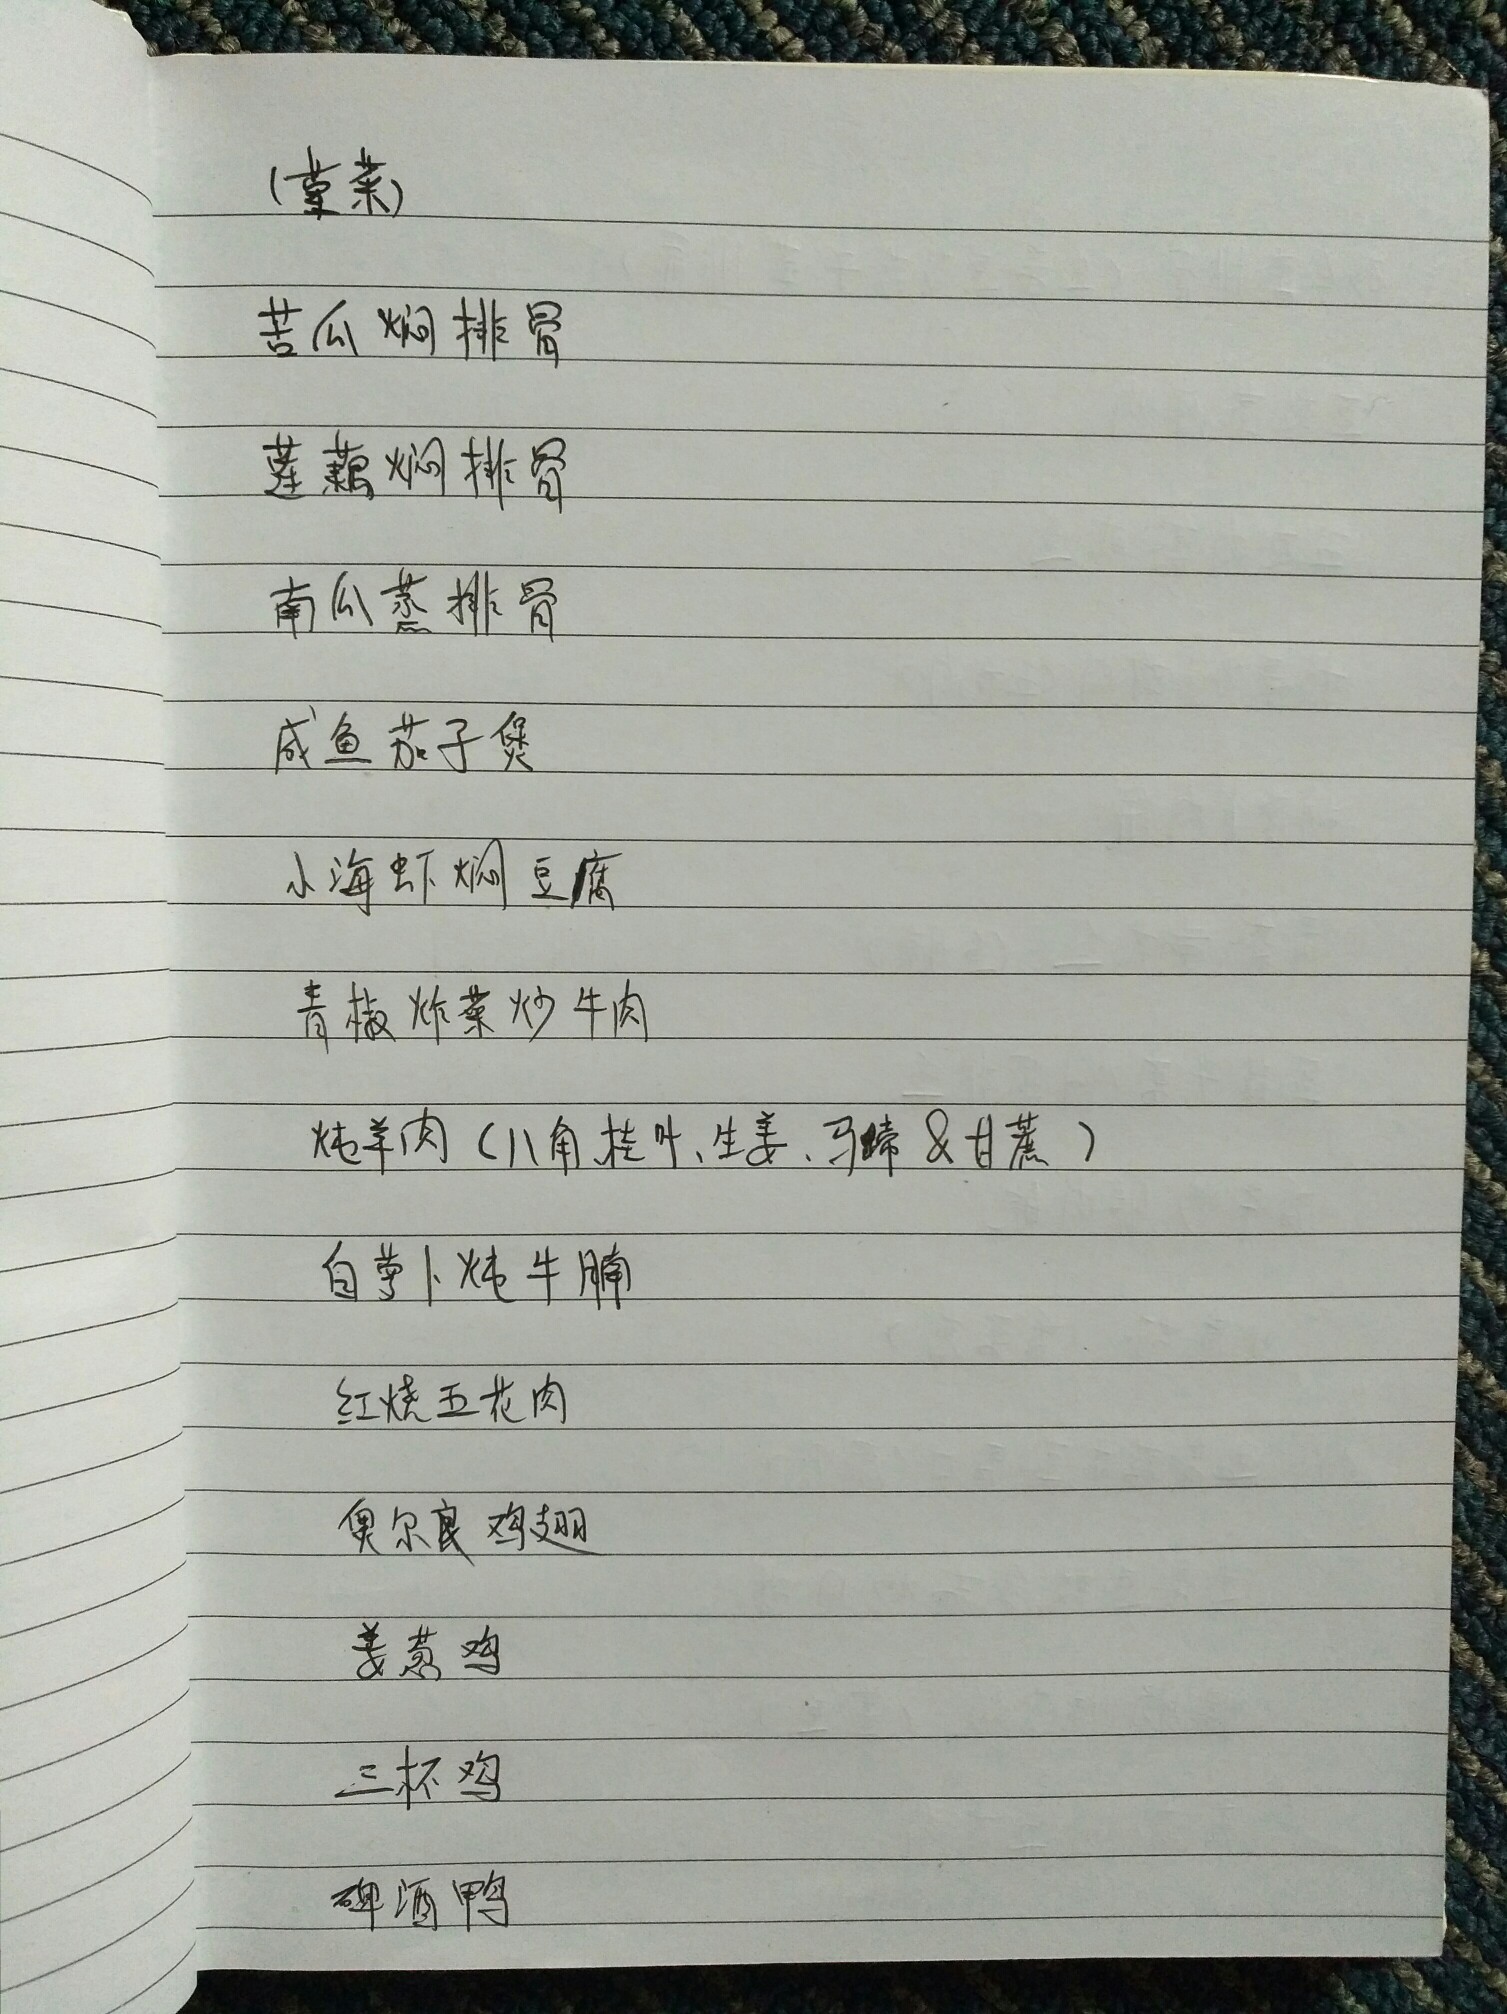 (荤菜)
苦瓜焖排骨
莲藕焖排骨
南瓜蒸排骨
咸鱼茄子煲
小海虾焖豆腐
青椒炸菜炒牛肉
炖羊肉(八角、桂叶、生姜、马蹄&甘蔗)
白萝卜炖牛腩
红烧五花肉
奥尔良鸡翅
姜葱鸡
三杯鸡
碑酒鸭